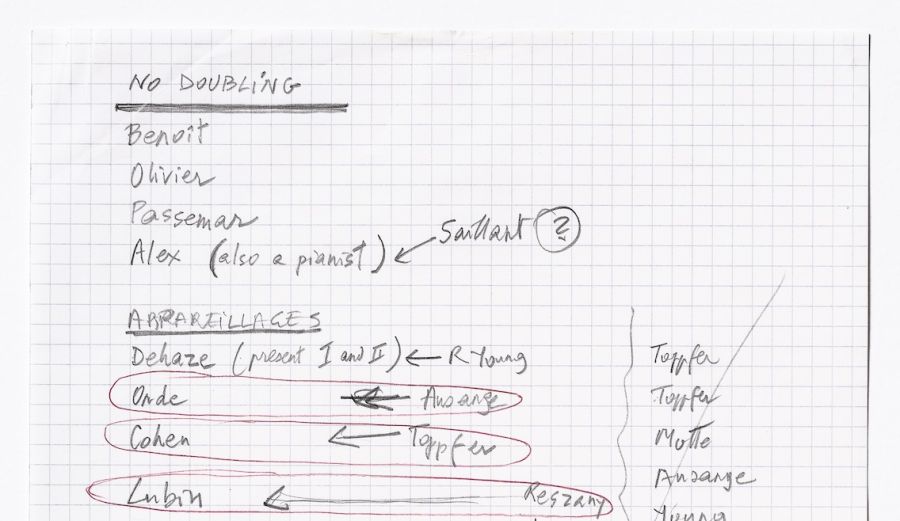 NO DOUBLING
Benoît
Olivier
Passemar
Alex (also a pianist) ← Saillant ?
APPAREILLAGES
Dehaze (present I and II) ← R. Young
Onde ← Ausange
Cohen ← Toppfer
Lubin ← Reszany
Toppfer
Toppfer
Motte
Ausange
Young